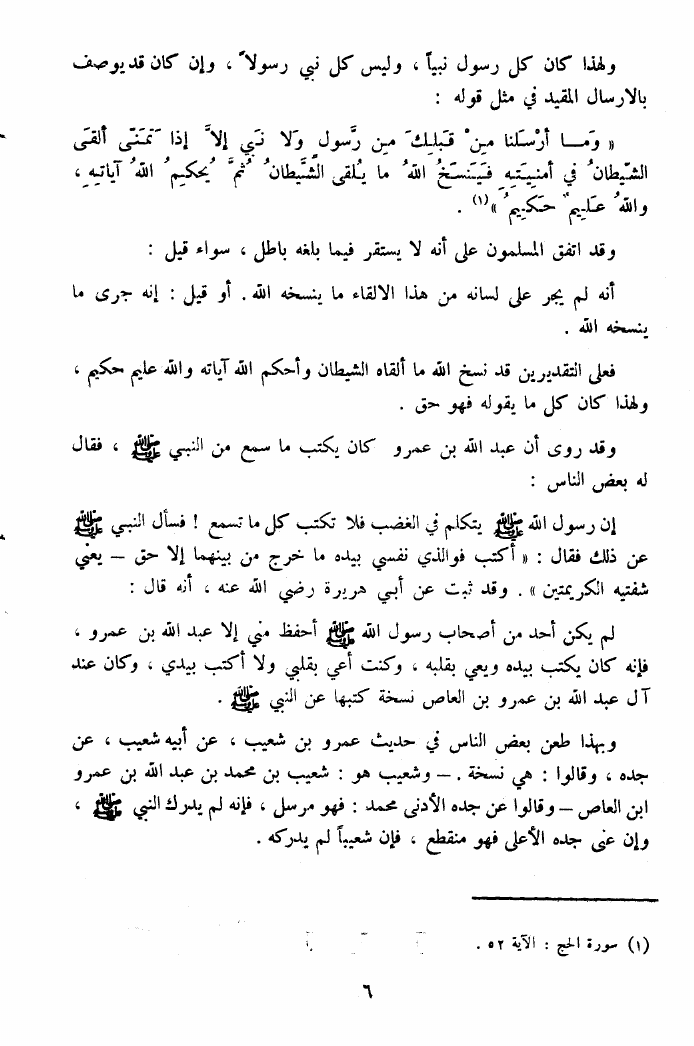 ولهذا كان كل رسول نبياً ، وليس كل نبي رسولاً ، وإن كان قد يوصف
بالارسال المقيد في مثل قوله :
« وَمَـا أرْسَلنا مِنْ قَبلِكَ مِن رَّسول وَلا نَبي إلاَّ إذا تَمَنّى ألقَى
الشّيطانُ في أمنِيَتِهِ فَيَنسَخُ اللهُ ما يُلقى الشَّيطانُ ثُمَّ يُحكِيمُ اللهُ آياتِهِ ،
واللهُ عَلِيمٌ حَكِيمٌ »(١) .
وقد اتفق المسلمون على أنه لا يستقر فيما بلغه باطل ، سواء قيل :
أنه لم يجر على لسانه من هذا الالقاء ما ينسخه الله . أو قيل : إنه جرى ما
ينسخه الله .
فعلى التقديرين قد نسخ الله ما ألقاه الشيطان وأحكم الله آياته والله عليم حكيم ،
ولهذا كان كل ما يقوله فهو حق .
وقد روى أن عبد الله بن عمرو كان يكتب ما سمع من النبي ﷺ ، فقال
له بعض الناس :
إن رسول الله ﷺ يتكلم في الغضب فلا تكتب كل ما تسمع ! فسأل النبي ﷺ
عن ذلك فقال : « أكتب فوالذي نفسي بيده ما خرج من بينهما إلا حق – يعني
شفتيه الكريمتين » . وقد ثبت عن أبي هريرة رضي الله عنه ، أنه قال :
لم يكن أحد من أصحاب رسول الله ﷺ أحفظ مني إلا عبد الله بن عمرو ،
فإنه كان يكتب بيده ويعي بقلبه ، وكنت أعي بقلبي ولا أكتب بيدي ، وكان عند
آل عبد الله بن عمرو بن العاص نسخة كتبها عن النبي ﷺ .
وبهذا طعن بعض الناس في حديث عمرو بن شعيب ، عن أبيه شعيب ، عن
جده ، وقالوا : هي نسخة . – وشعيب هو : شعيب بن محمد بن عبد الله بن عمرو
ابن العاص – وقالوا عن جده الأدنى محمد : فهو مرسل ، فإنه لم يدرك النبي ﷺ ،
وإن عنى جده الأعلى فهو منقطع ، فإن شعيباً لم يدركه .
(١) سورة الحج : الآية ٥٢ .
٦